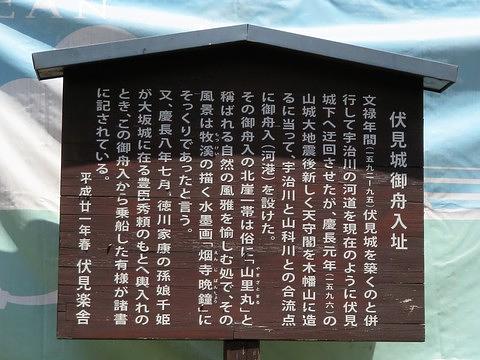 伏見城御舟入址
文禄年間(一五九二─九五)伏見城を築くのと併
行して宇治川の河道を現在のように伏見
城下へ迂回させたが、慶長元年(一五九六)の
山城大地震後新しく天守閣を木幡山に造
るに当って、宇治川と山科川との合流点
に御舟入(河港)を設けた。
その御舟入の北崖一帯は俗に「山里丸」と
稱ばれる自然の風雅を愉しむ処で、その
風景は牧溪の描く水墨画「烟寺晩鐘」に
そっくりであったと言う。
又、慶長八年七月、徳川家康の孫娘千姫
が大坂城に在る豊臣秀頼のもとへ輿入れの
とき、この御舟入から乗船した有様が諸書
に記されている。
平成廿一年春 伏見楽舎